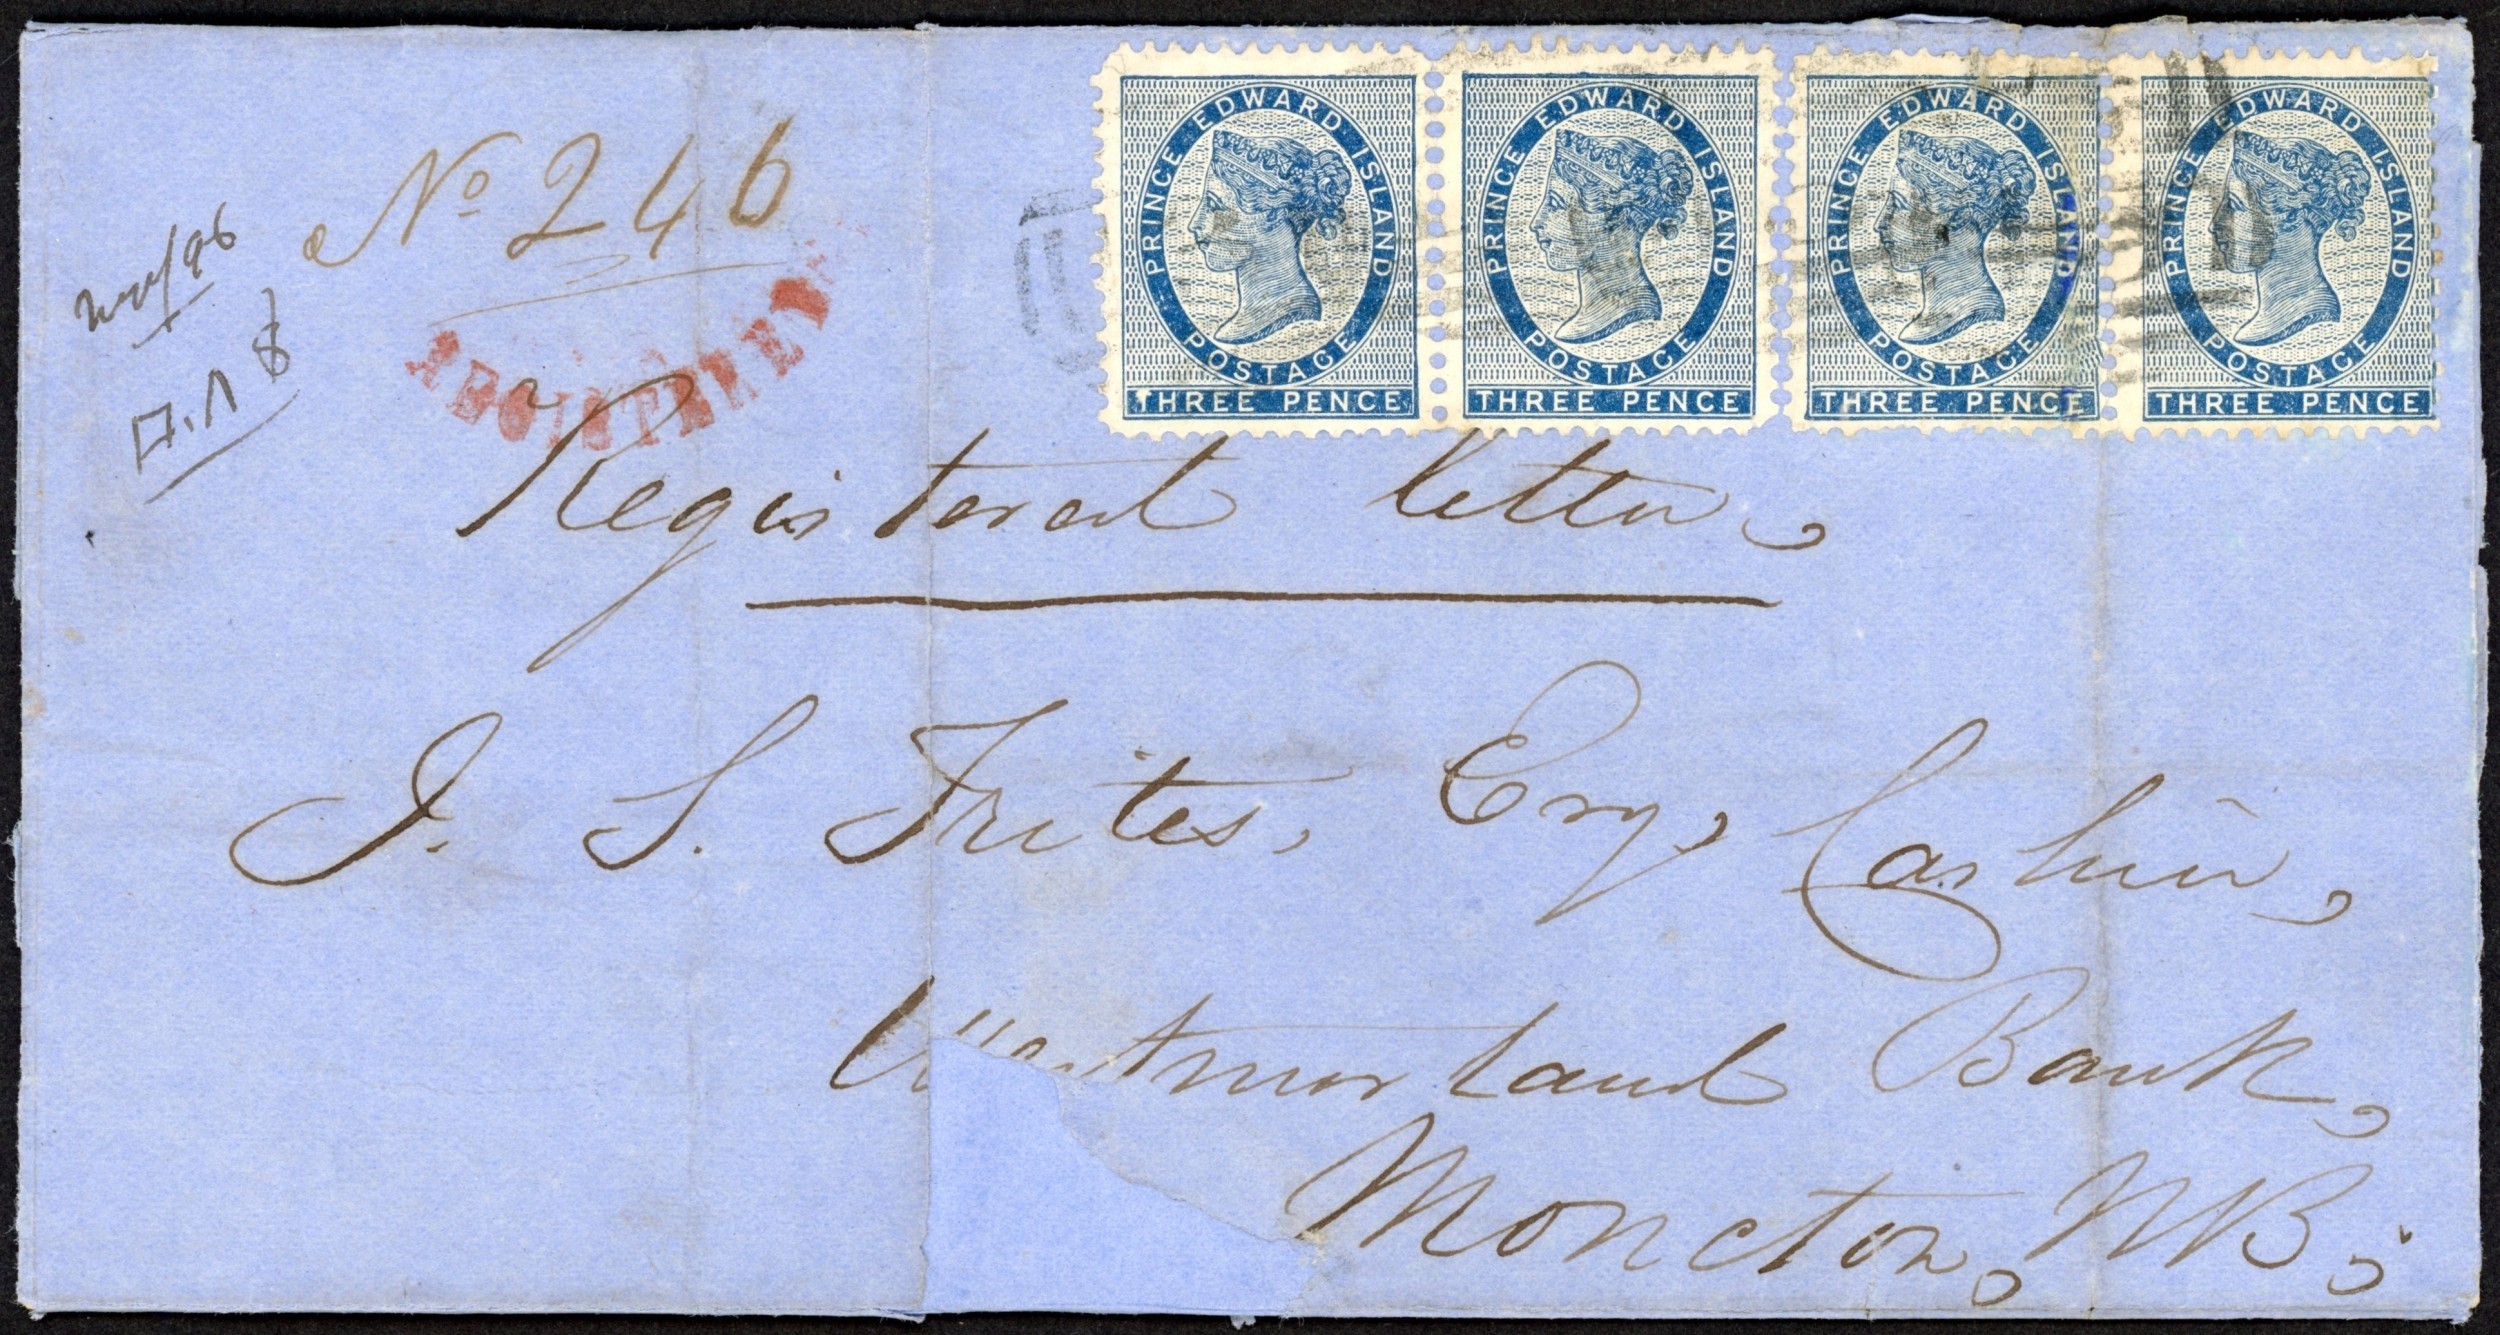 PRINCE EDWARD ISLAND
POSTAGE
THREE PENCE
PRINCE EDWARD ISLAND
POSTAGE
THREE PENCE
PRINCE EDWARD ISLAND
POSTAGE
THREE PENCE
PRINCE EDWARD ISLAND
POSTAGE
THREE PENCE
No 246
REGISTERED
Registered letter,
J. S. Trites, Esq, Cashier,
Westmorland Bank,
Moncton, NB;